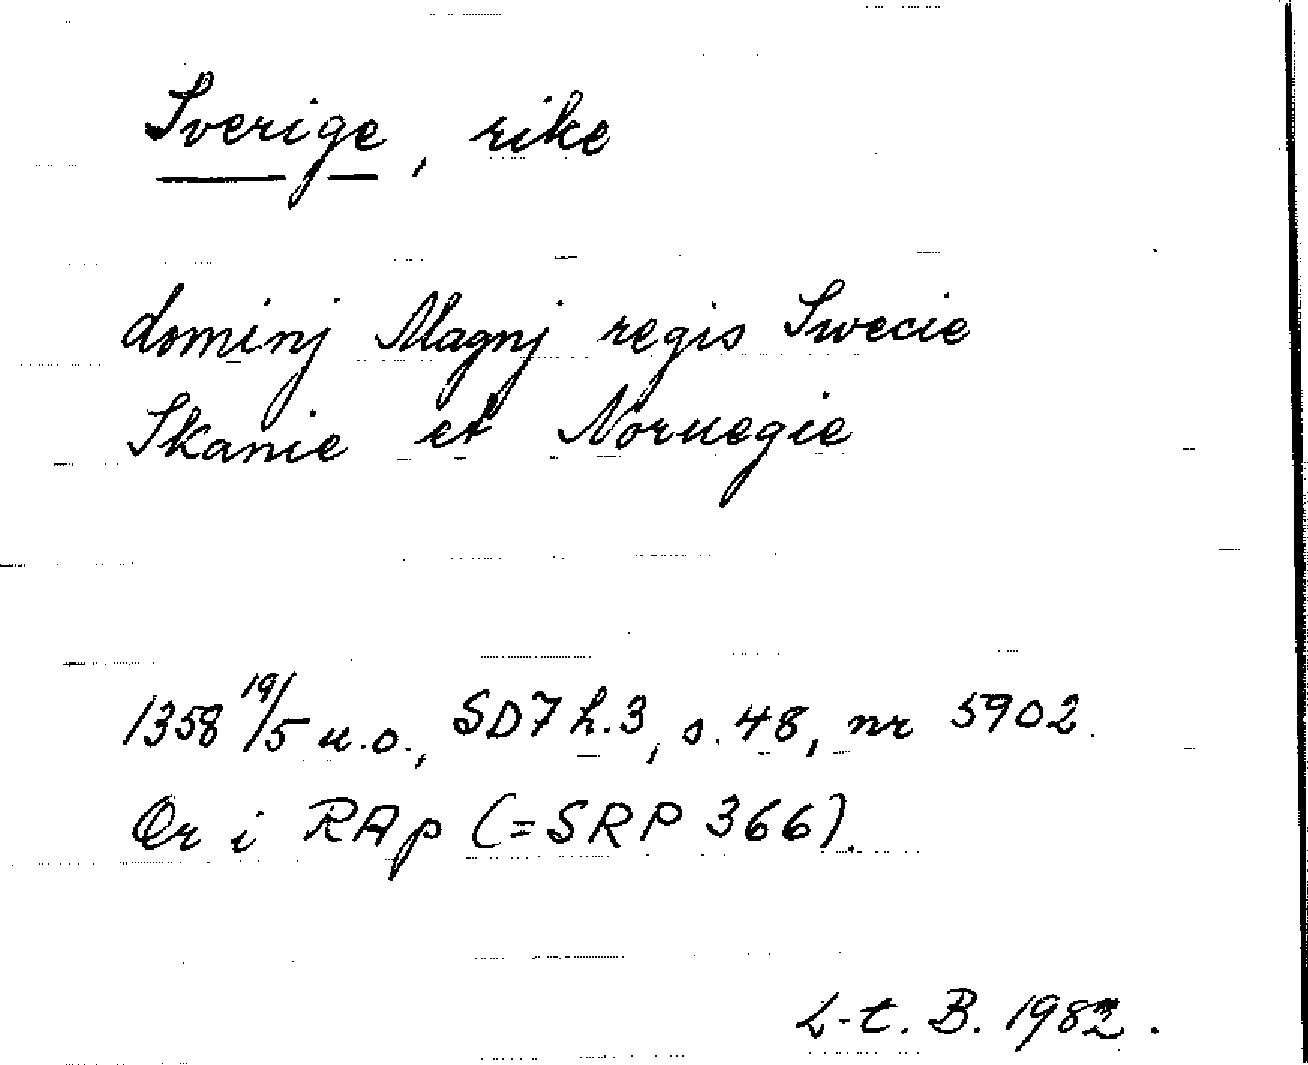 Sverige, rike
dominj Magnj regis Swecie
Skanie et Noruegie
1358 19/5 u.o., SD7 h.3, s. 48, nr 5902.
Or i RAp (=SRP 366).
L-t. B. 1982.